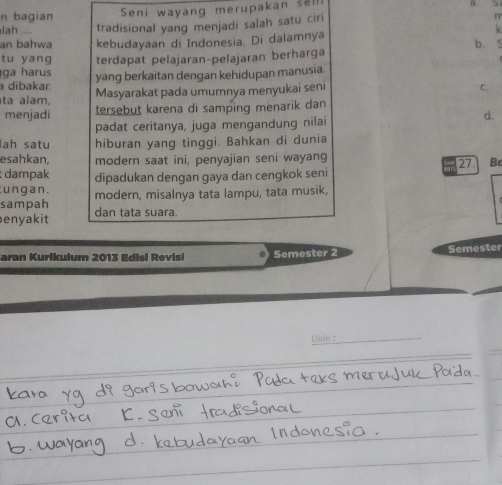 n bagian
lah ....
an bahwa
tu yang
ga harus
a dibakar.
ta alam,
menjadi
lah satu
esahkan,
dampak
tungan.
sampah
penyakit
Seni wayang merupakan seni
tradisional yang menjadi salah satu ciri
kebudayaan di Indonesia. Di dalamnya
terdapat pelajaran-pelajaran berharga
yang berkaitan dengan kehidupan manusia.
Masyarakat pada umumnya menyukai seni
tersebut karena di samping menarik dan
padat ceritanya, juga mengandung nilai
hiburan yang tinggi. Bahkan di dunia
modern saat ini, penyajian seni wayang
dipadukan dengan gaya dan cengkok seni
modern, misalnya tata lampu, tata musik,
dan tata suara.
a.
b.
c.
d.
27. Be
aran Kurikulum 2013 Edisi Revisi
Semester 2
Semester
Date :
kata yg di garis bawahi Pada teks merujuk Pada
a. cerita k. seni tradisional
b. wayang d. kebudayaan Indonesia.